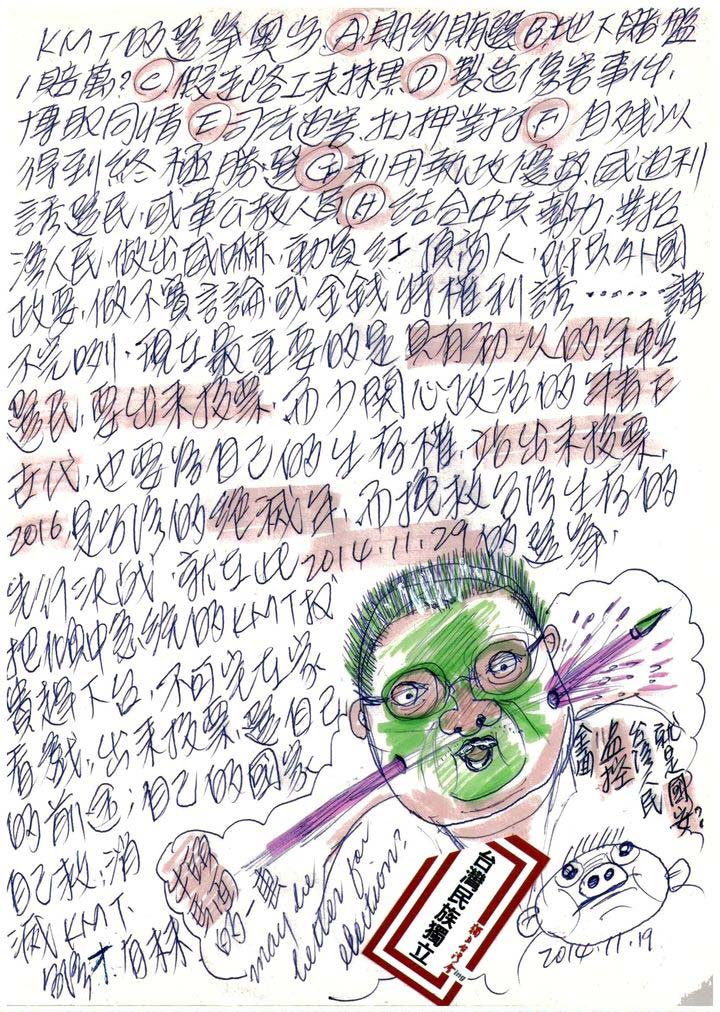 KMT的選舉奧步.Ⓐ期約賄選Ⓑ地下賭盤
1賠萬?Ⓒ假走路工未抹黑Ⓓ製造傷害事件.
博取同情Ⓔ司法迫害.扣押對手Ⓕ自残以
得到終極勝選Ⓖ利用執政優勢.威迫利
誘選民.或軍公教人員Ⓗ結合中共勢力.對台
灣人民.做出威嚇.動員紅頂商人.外國
政要.做不實言論.或金錢特權利誘……講
不完咧.現在最重要的是只有初次的年輕
選民.要出來投票.而少關心政治的
世代.也要為自己的生存權.站出來投票.
2016.是台灣的絕滅年.而挽救台灣生存的
先行決战 就在此2014.11.29的選舉.
把傾中急統的KMT投
票趕下台.不可宅在家
看戲.出來投票.選自己
的前途;自己的國家
自己救.消
滅KMT.
才有未來.
的一費
may be
better for
election?
台灣民族獨立
ing
就是國安?
台灣人民
監控
全面
2014.11.19